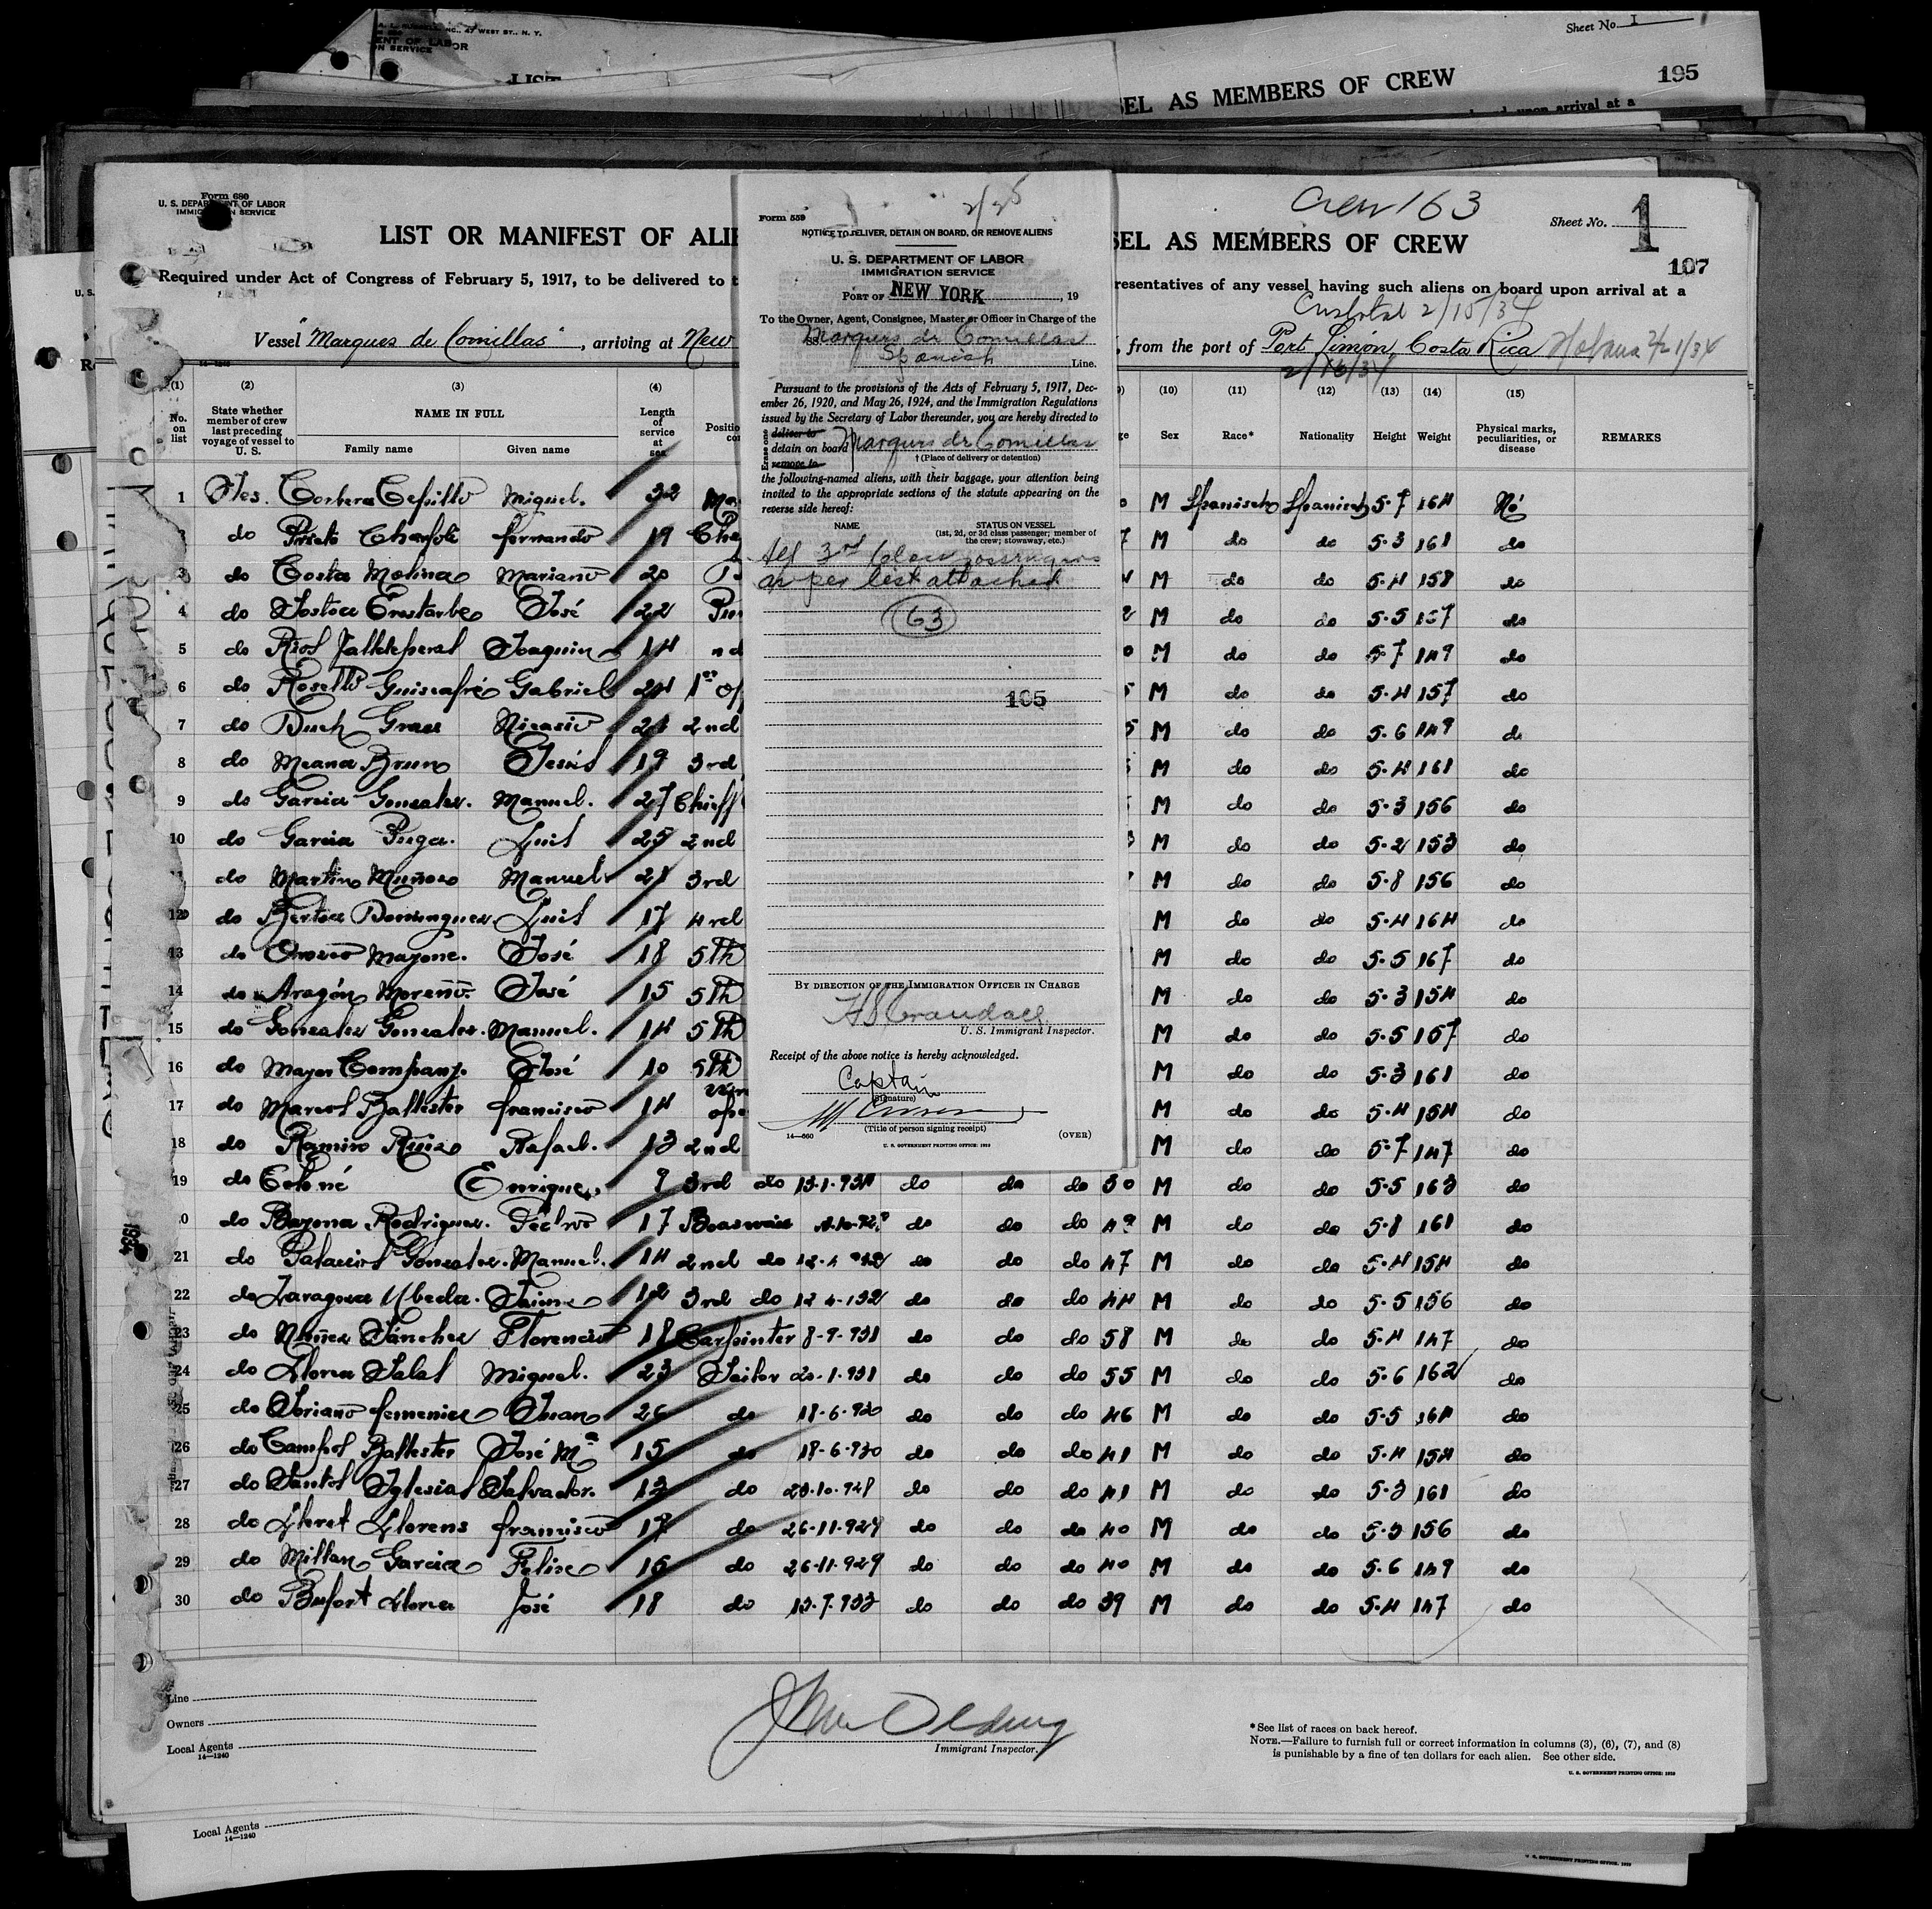 A. L. RUSSELL, INC., 47 WEST ST., N. Y.
ENT OF LABOR
N SERVICE
LIST
Sheet No. 1
195
SEL AS MEMBERS OF CREW
upon arrival at a
Form 680
U. S. DEPARTMENT OF LABOR
IMMIGRATION SERVICE
Crew 163
Sheet No. 1
107
LIST OR MANIFEST OF ALIE
SEL AS MEMBERS OF CREW
Required under Act of Congress of February 5, 1917, to be delivered to t
resentatives of any vessel having such aliens on board upon arrival at a
Cristobal 2/15/34
Vessel "Marques de Comillas", arriving at New
, from the port of Port Limón, Costa Rica Habana 2/21/34
2/16/34
14—1240
(1) (2) (3) (4) (10) (11) (12) (13) (14) (15)
No. on list
State whether member of crew last preceding voyage of vessel to U. S.
NAME IN FULL
Family name Given name
Length of service at sea
Positio
Sex Race* Nationality Height Weight
Physical marks, peculiarities, or disease
REMARKS
1 Yes. Corbera Cepillo Miguel. 32 M Spanish Spanish 5-7 164 No
do Prieto Fernando 19 Che M do do 5-3 161 do
3 do Costa Molina Mariano 20 M do do 5-4 158 do
4 do José 22 M do do 5-5 157 do
5 do Rios Joaquin 14 M do do 5-7 149 do
6 do Roselló Guiscafré Gabriel 24 1er of M do do 5-4 157 do
7 do Nicasio 21 2nd M do do 5-6 149 do
8 do Meana Brun Jesús 19 3rd M do do 5-4 161 do
9 do Garcia Gonzalez. Manuel. 27 Chieff M do do 5-3 156 do
10 do Garcia Puga. Luis 25 2nd M do do 5-2 153 do
do Martin Manuel 21 3rd M do do 5-8 156 do
12 do Dominguez Luis 17 4rd M do do 5-4 164 do
13 do José 18 5th M do do 5-5 167 do
14 do Aragón Moreno. José 15 5th M do do 5-3 154 do
15 do Gonzalez Gonzalez. Manuel. 14 5th M do do 5-5 157 do
16 do Mayor Company. José 10 5th M do do 5-3 161 do
17 do Ballester Francisco 14 M do do 5-4 154 do
18 do Ramiro Rafael. 13 2nd M do do 5-7 147 do
19 do Enrique 9 3rd do 13-1-934 do do do 30 M do do 5-5 163 do
do Bayona Rodriguez. Pedro 17 do do do M do do 5-8 161 do
21 do Palacios Gonzalez. Manuel. 14 2nd do do do do 47 M do do 5-4 154 do
22 do Zaragoza Ubeda. Jaime 12 3rd do 12-4-932 do do do 44 M do do 5-5 156 do
23 do Nuñez Sánchez Florencio 18 Carpinter 8-9-931 do do do 58 M do do 5-4 147 do
24 do Llorca Miguel. 23 Sailor 20-1-931 do do do 55 M do do 5-6 162 do
25 do Soriano Femenia Juan 26 do 18-6-930 do do do 46 M do do 5-5 164 do
26 do Campos Ballester José Ma 15 do 18-6-930 do do do 41 M do do 5-4 154 do
27 do Santos Iglesias Salvador. 13 do do do do 41 M do do 5-3 161 do
28 do Lloret Llorens Francisco 17 do 26-11-929 do do do 40 M do do 5-3 156 do
29 do Millan Garcia Felix 16 do 26-11-929 do do do 40 M do do 5-6 149 do
30 do Bufort Llorca José 18 do 13-7-933 do do do 39 M do do 5-4 147 do
Form 559
NOTICE TO DELIVER, DETAIN ON BOARD, OR REMOVE ALIENS
U. S. DEPARTMENT OF LABOR
IMMIGRATION SERVICE
PORT OF NEW YORK, 19
To the Owner, Agent, Consignee, Master or Officer in Charge of the
Marques de Comillas
Spanish Line.
Pursuant to the provisions of the Acts of February 5, 1917, Dec-
ember 26, 1920, and May 26, 1924, and the Immigration Regulations
issued by the Secretary of Labor thereunder, you are hereby directed to
Erase one
deliver to
detain on board Marques de Comillas
remove to
† (Place of delivery or detention)
the following-named aliens, with their baggage, your attention being
invited to the appropriate sections of the statute appearing on the
reverse side hereof:
NAME STATUS ON VESSEL
(1st, 2d, or 3d class passenger; member of
the crew; stowaway, etc.)
All 3rd class passengers
as per list attached
63
105
BY DIRECTION OF THE IMMIGRATION OFFICER IN CHARGE
H S Crandall
U. S. Immigrant Inspector.
Receipt of the above notice is hereby acknowledged.
Captain
(Signature)
(Title of person signing receipt)
14—660
(OVER)
U. S. GOVERNMENT PRINTING OFFICE: 1929
Line
Owners
Local Agents
14—1240
Immigrant Inspector.
*See list of races on back hereof.
NOTE.—Failure to furnish full or correct information in columns (3), (6), (7), and (8)
is punishable by a fine of ten dollars for each alien. See other side.
U. S. GOVERNMENT PRINTING OFFICE: 1929
Local Agents
14—1240